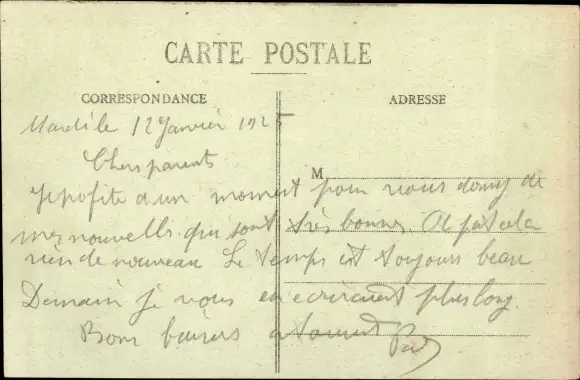 CARTE POSTALE
CORRESPONDANCE
ADRESSE
Mardi le 12 Janvier 192
Chers parents
M
profite d'un moment pour vous donny de
mes nouvells qui sont très bonnes.
rien de nouveau Le temps est toujours beau
Demain je vous en ecrirai plus long.
Bons baisers a